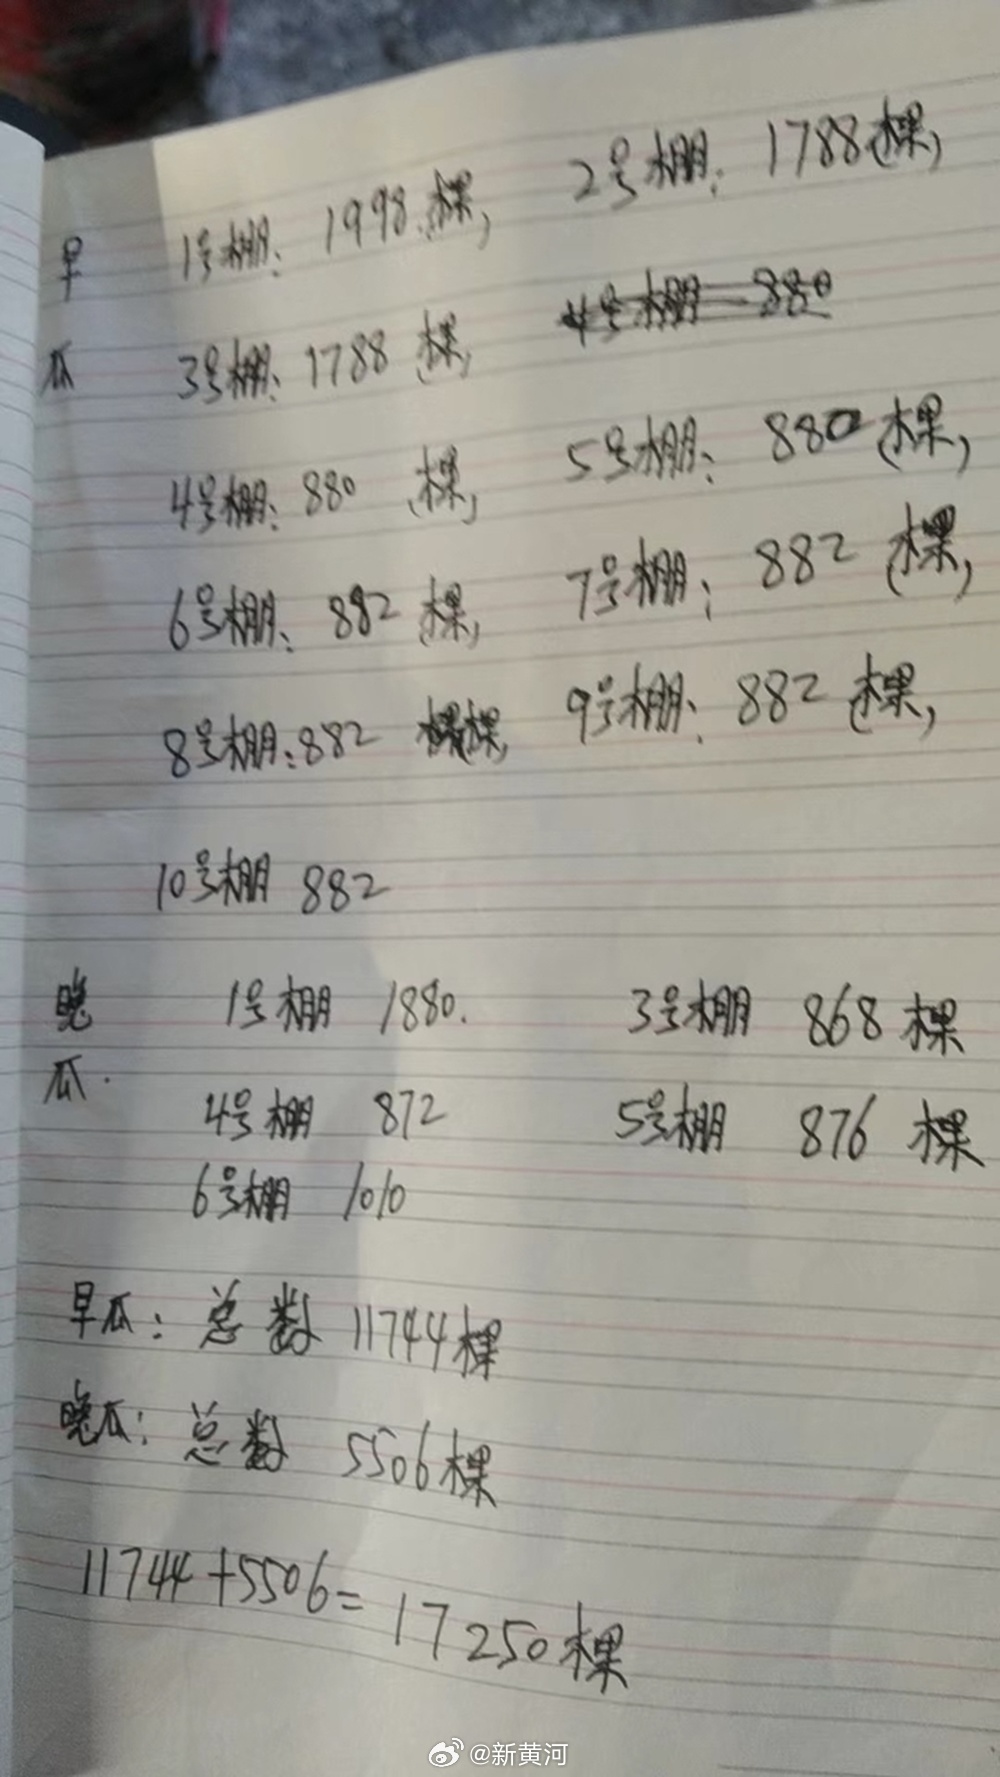 早 1号棚: 1998.棵, 2号棚: 1788棵,
瓜 3号棚: 1788 棵, 4号棚 880
4号棚: 880 棵, 5号棚: 880 棵,
6号棚: 882 棵, 7号棚: 882 棵,
8号棚: 882 棵, 9号棚: 882 棵,
10号棚 882
晚 1号棚 1880. 3号棚 868 棵
瓜. 4号棚 872 5号棚 876 棵
6号棚 1010
早瓜: 总数 11744棵
晚瓜: 总数 5506棵
11744+5506=17250棵
@新黄河